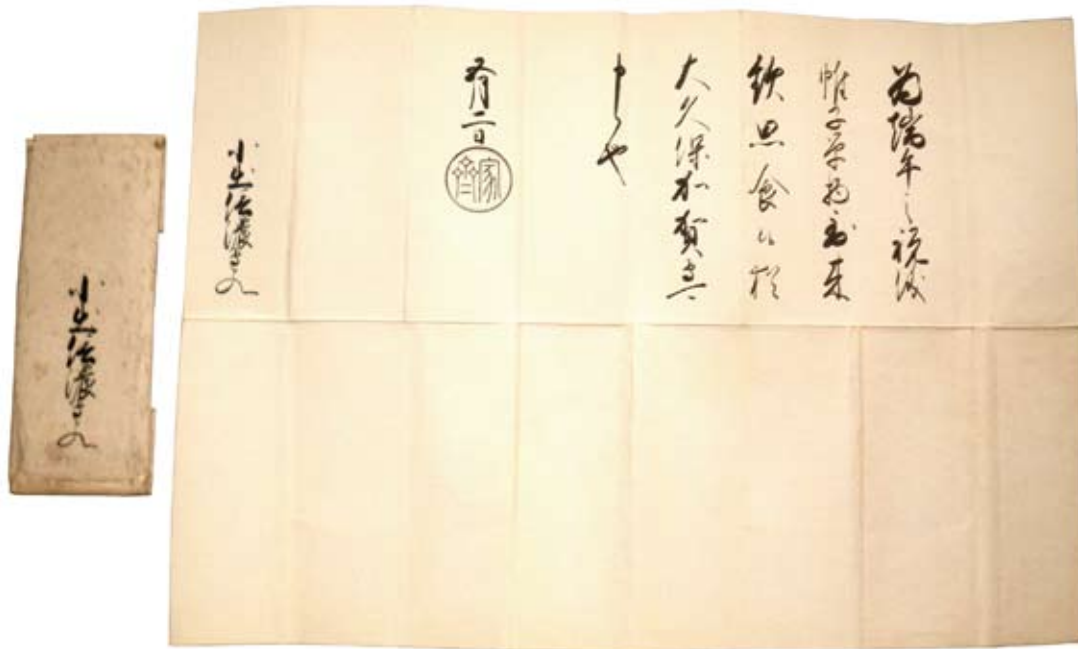 為端午之祝儀
帷子単物到来
歓思食候猶
大久保加賀守可
申候也
五月二日
家齊
小出信濃守とのへ
小出信濃守とのへ